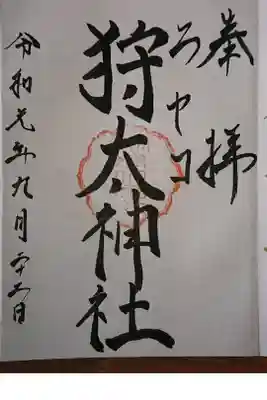 奉拝
ニセコ
狩太神社
令和元年九月二十 日